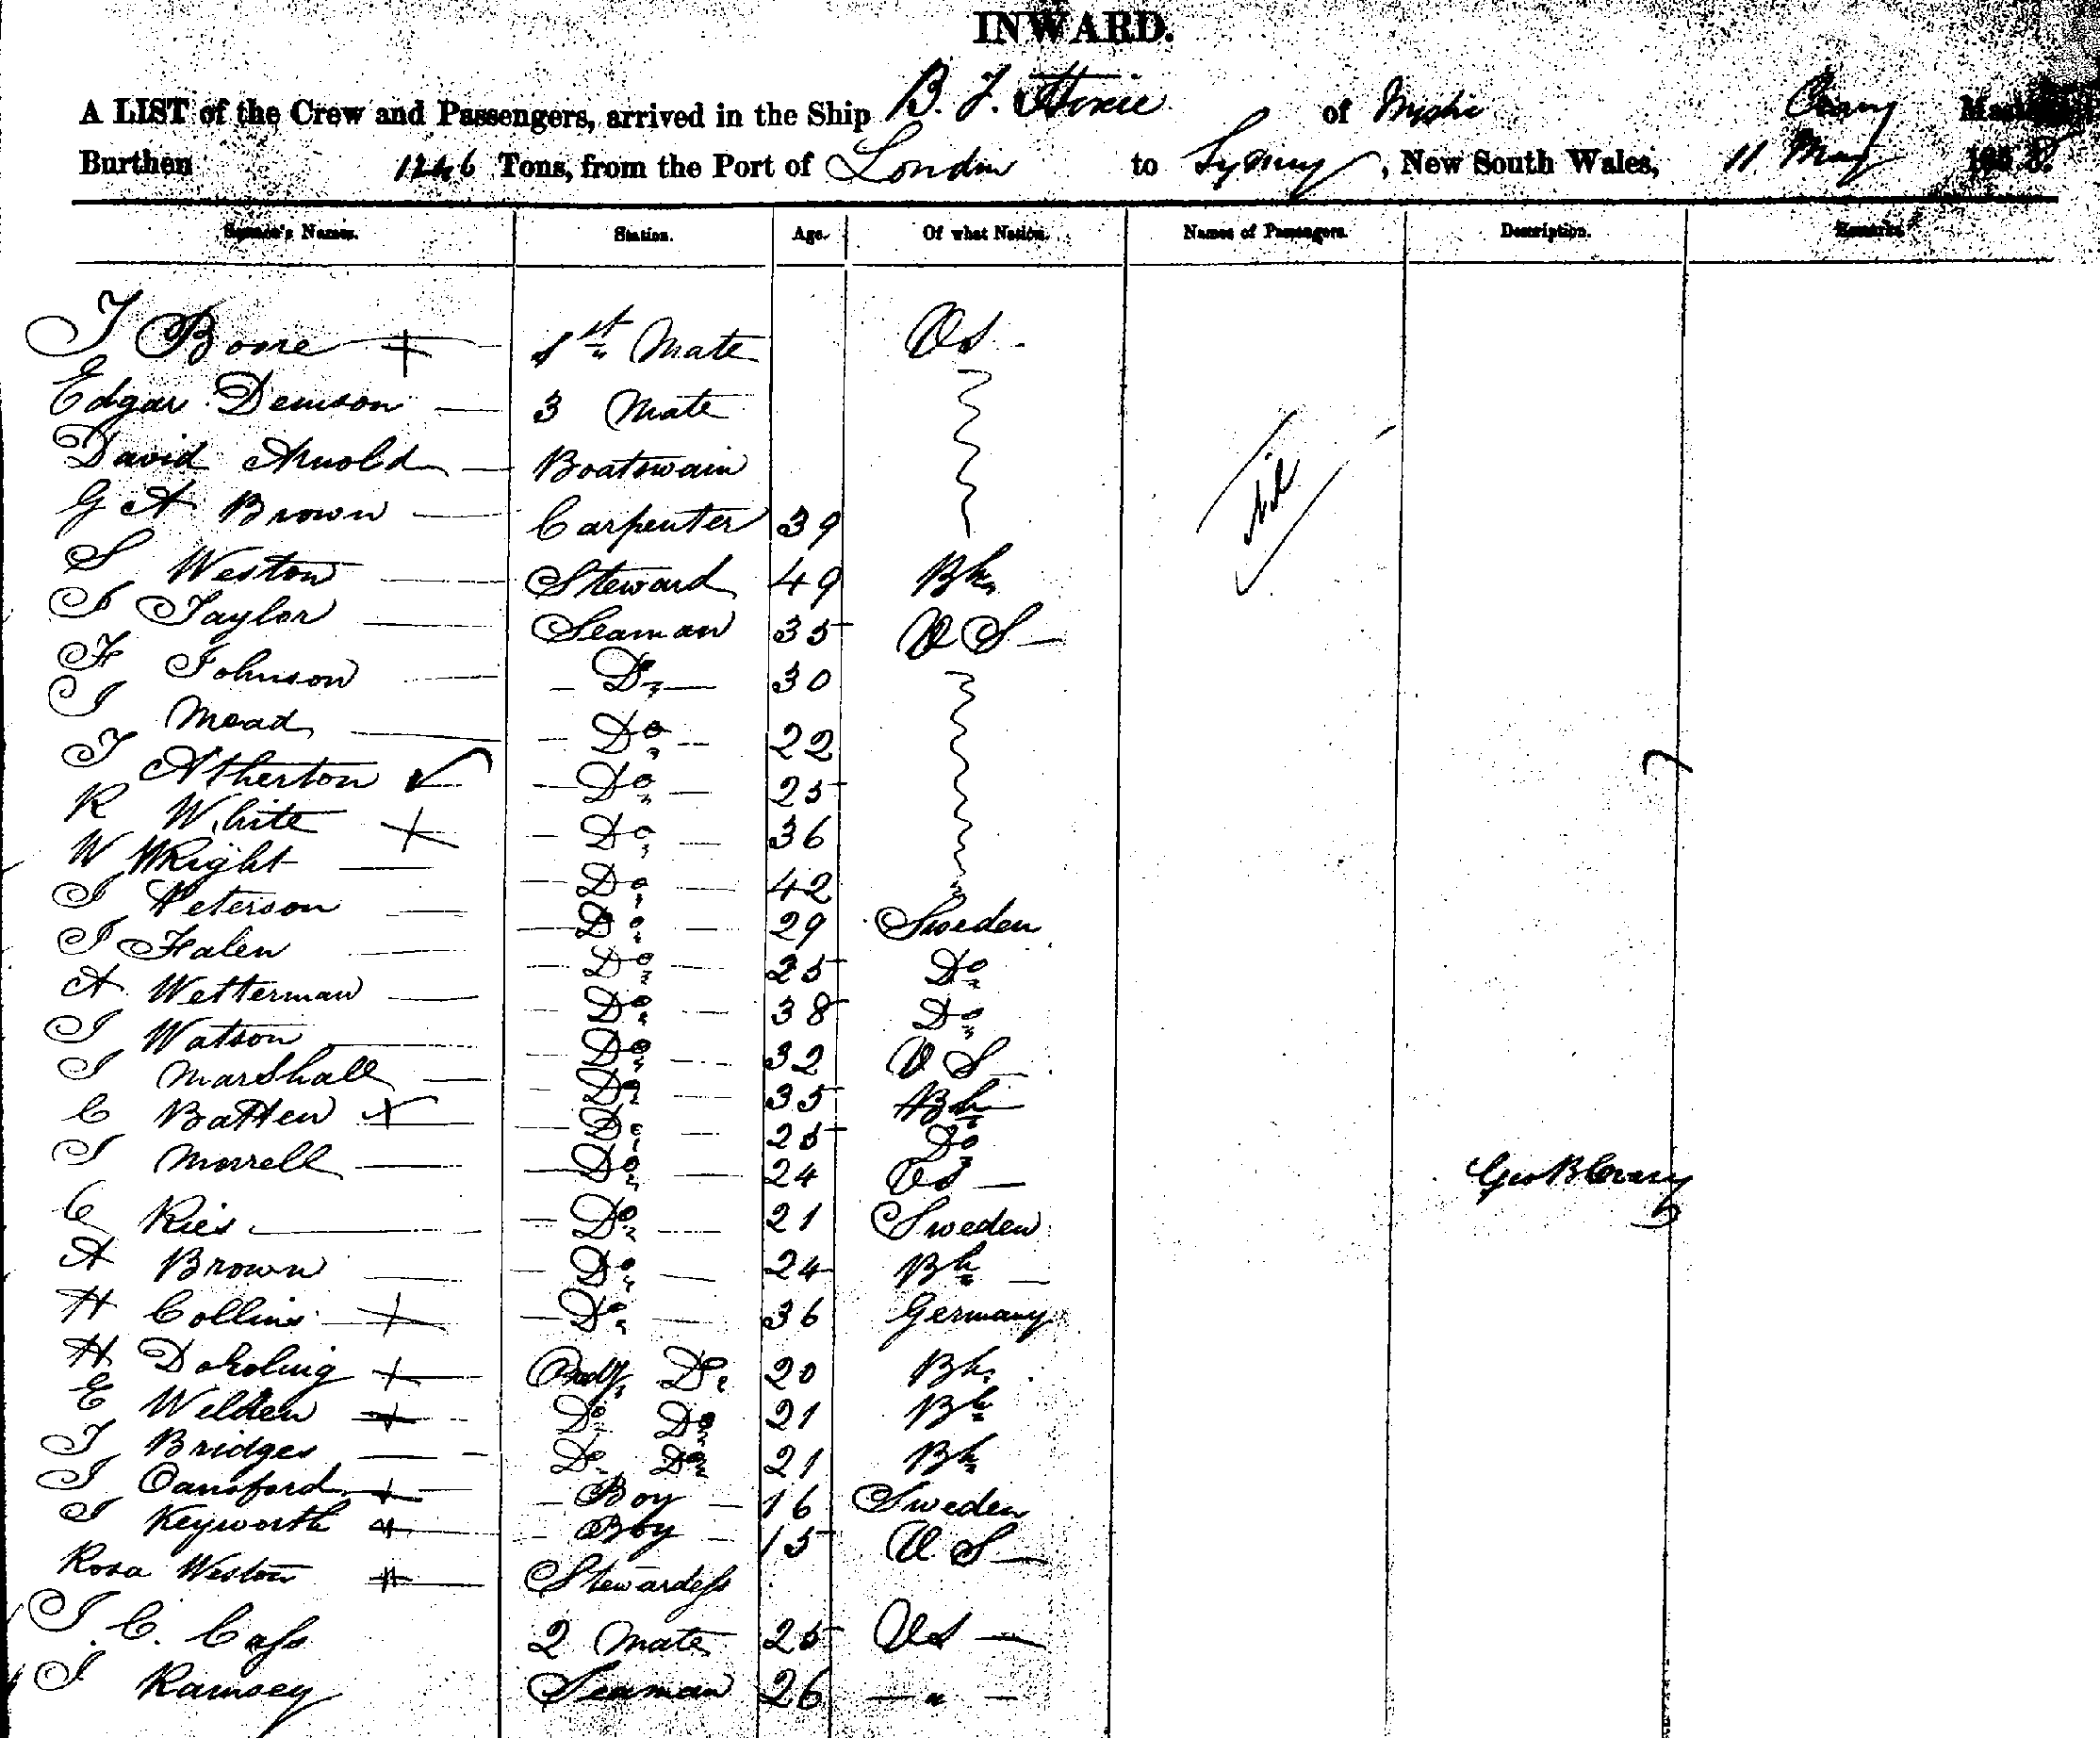 INWARD.
A LIST of the Crew and Passengers, arrived in the Ship B. F. Hoxie of Mystic Master
Burthen 1246 Tons, from the Port of London to Sydney, New South Wales, 11 May 185
Seamen's Names. Station. Age. Of what Nation. Names of Passengers. Description. Remarks
Boone + 1st Mate US
Edgar Denison 3 Mate
David Arnold Boatswain
G A Brown Carpenter 39
Nil
S Weston Steward 49 Bh
Taylor Seaman 35 US
Johnson Do 30
Mead Do 22
Atherton ✓ Do 25
R White + Do 36
W Wright Do 42
Peterson Do 29 Sweden
Falen Do 25 Do
A Wetterman Do 38 Do
Watson Do 32 US
Marshall Do 35 Bh
C Batten + Do 25 Do
Morrell Do 24 US
C Ries Do 21 Sweden
A Brown Do 24 Bh
H Collins + Do 36 Germany
H + Do 20 Bh
E Welden + Do Do 21 Bh
Bridges Do Do 21 Bh
+ Boy 16 Sweden
Keyworth + Boy 15 US
Rosa Weston + Stewardess
C. Cass 2 Mate 25 US
Ramsey Seaman 26 "